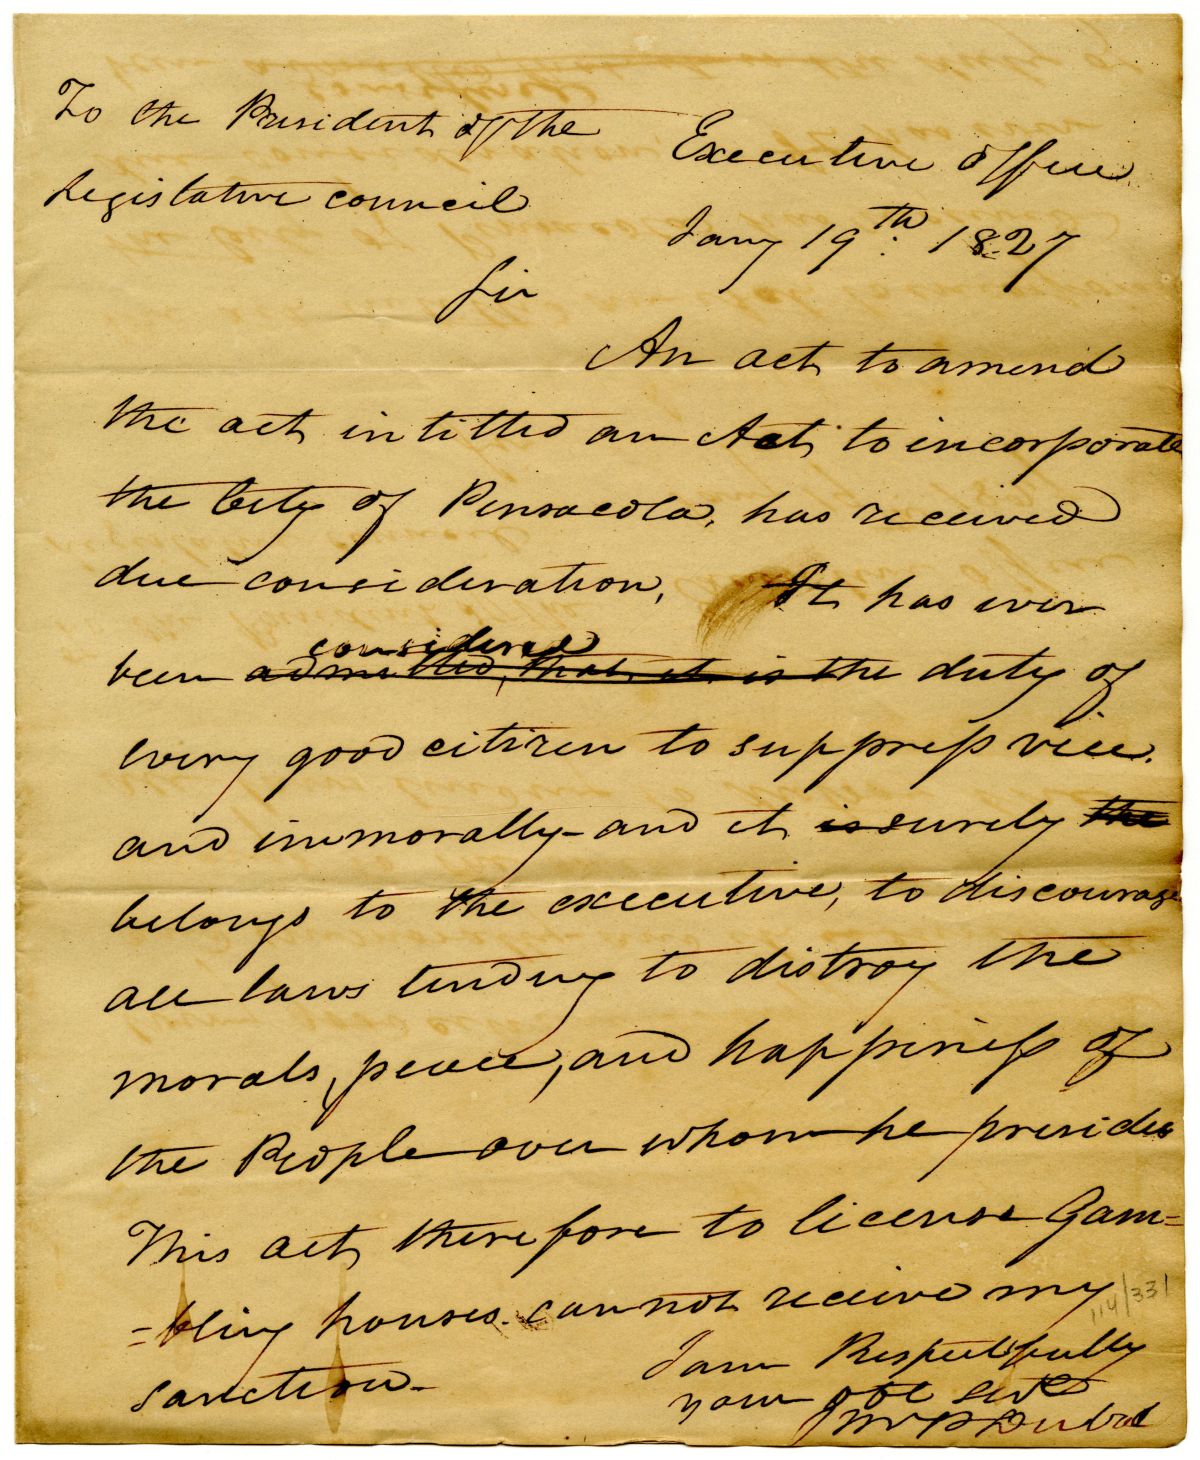 To the President of the
Legislative council
Executive office
Jany 19th. 1827
Sir
An act to amend
the act intitled an Act to incorporate
the City of Pensacola, has received
due consideration, It has ever
considered
been admitted, that it is the duty of
every good citizen to suppress vice.
and immorally - and it is surely the
belongs to the executive, to discourage
all laws tending to distroy the
morals, peace, and happiness of
the People over whom he presides
This act therefore to license Gam=
=bling houses. cannot receive my
sanction -
114/331
I am Respectfully
your obt servt
Wm P DuVal